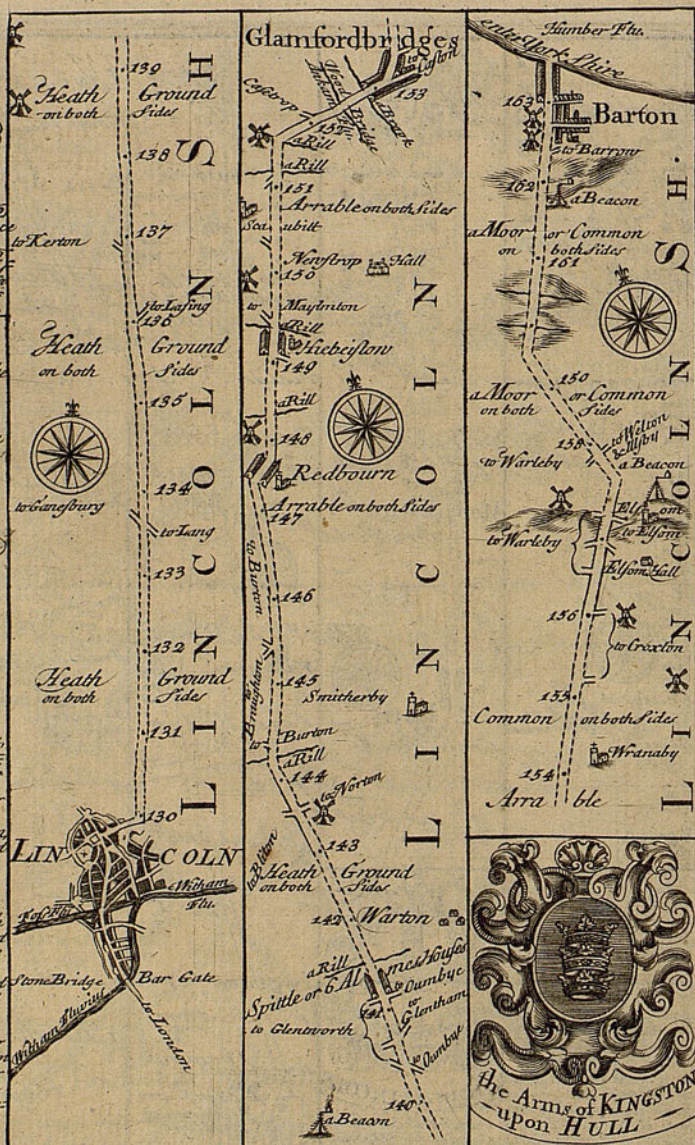 139
Heath Ground
on both Sides
138
137
to Kerton
to Lasing
136
Heath Ground
on both Sides
135
134
to Ganesburg
to Lang
133
132
Heath Ground
on both Sides
131
130
LINCOLN
Witham
Flu.
Fos Flu
Stone Bridge
Bar Gate
Witham Fluvius
to London
LINCOLNSH
Glamfordbridges
to Caston
153
Castrop
Wood
Bridge
Ankam Flu.
a Beack
152
a Rill
a Rill
151
Arrable on both Sides
Scaubilt
Newstrop Hall
150
to Maylmton
a Rill
Hiebeistow
149
a Rill
148
Redbourn
Arrable on both Sides
147
to Burton
146
to Braughton
145
Smitherby
to Burton
a Rill
144
to Norton
143
to Bliton
Heath Ground
on both Sides
142
Warton
a Rill
Spittle or 6 Almes Houses
to Oumbye
to Glentham
141
to Glentworth
to Oumbye
140
a Beacon
LINCOLN
Humber Flu.
enter York Shire
163
Barton
to Barrow
162
a Beacon
a Moor or Common
on both Sides
161
150
a Moor or Common
on both Sides
158
to Welton
& Ellsby
to Warleby
a Beacon
Elsom
to Elsom
to Warleby
Elsom Hall
156
to Croxton
155
Common on both Sides
Wranaby
154
Arrable
LINCOLNSH.
the Arms of KINGSTON
upon HULL